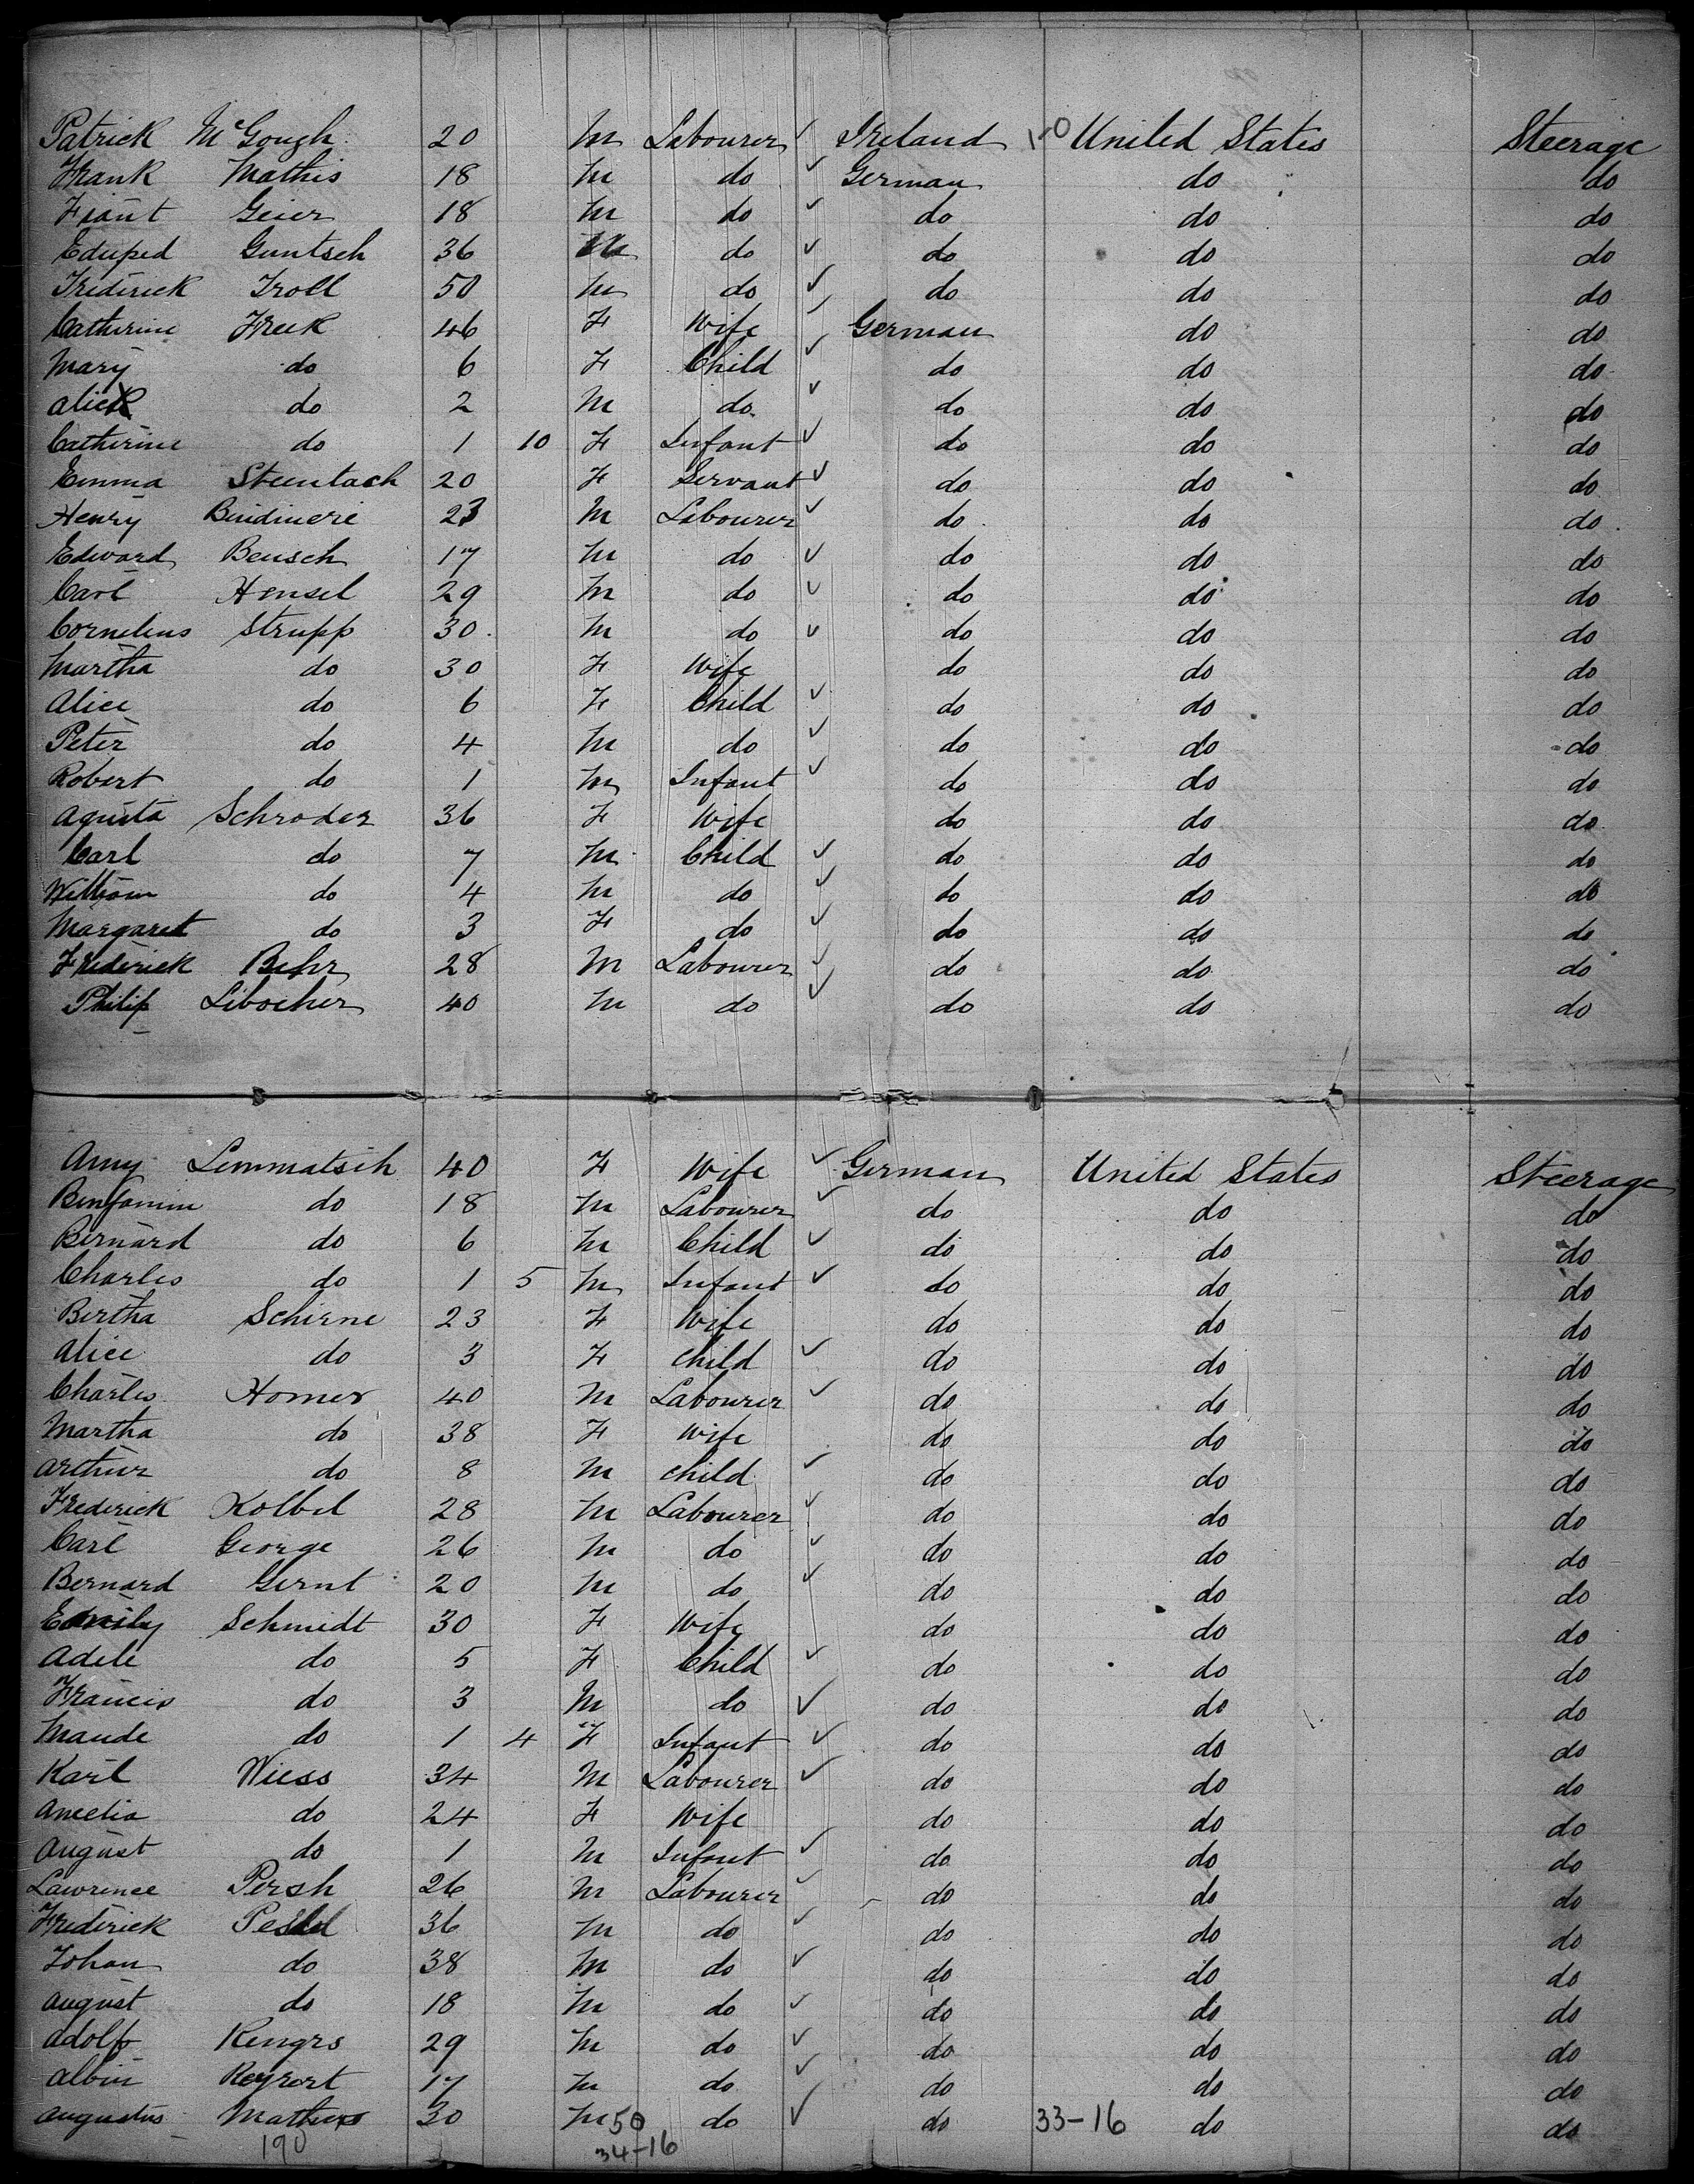 Patrick McGough 20 M Labourer ✓ Ireland United States Steerage
Frank Mathis 18 M do ✓ German do do
Geier 18 M do ✓ do do do
Guntsch 36 M do ✓ do do do
Frederick Troll 50 M do ✓ do do do
Catherine Freek 46 F Wife ✓ German do do
Mary do 6 F Child ✓ do do do
do 2 M do ✓ do do do
Catherine do 1 10 F Infant ✓ do do do
Emma 20 F Servant ✓ do do do
Henry 23 M Labourer ✓ do do do
Edward Beusch 17 M do ✓ do do do
Carl Hensel 29 M do ✓ do do do
Cornelius Strupp 30 M do ✓ do do do
Martha do 30 F Wife do do do
Alice do 6 F Child ✓ do do do
Peter do 4 M do ✓ do do do
Robert do 1 M Infant ✓ do do do
Agusta Schroder 36 F Wife do do do
Carl do 7 M Child ✓ do do do
William do 4 M do ✓ do do do
Margaret do 3 F do ✓ do do do
Frederick Behr 28 M Labourer ✓ do do do
Philip Libocher 40 M do ✓ do do do
Amy Lemmatsih 40 F Wife ✓ German United States Steerage
Benjamin do 18 M Labourer ✓ do do do
Bernard do 6 M Child ✓ do do do
Charles do 1 5 M Infant ✓ do do do
Bertha Schirne 23 F Wife do do do
Alice do 3 F Child ✓ do do do
Charles Homer 40 M Labourer ✓ do do do
Martha do 38 F Wife do do do
Arthur do 8 M Child ✓ do do do
Frederick Kolbel 28 M Labourer ✓ do do do
Carl George 26 M do ✓ do do do
Bernard Gernt 20 M do ✓ do do do
Emily Schmidt 30 F Wife do do do
Adele do 5 F Child ✓ do do do
Francis do 3 M do ✓ do do do
Maude do 1 4 F Infant ✓ do do do
Karl Wiess 34 M Labourer ✓ do do do
Amelia do 24 F Wife do do do
August do 1 M Infant ✓ do do do
Lawrence Persh 26 M Labourer ✓ do do do
Frederick 36 M do ✓ do do do
Johan do 38 M do ✓ do do do
August do 18 M do ✓ do do do
Adolf Rengrs 29 M do ✓ do do do
Albin 17 M do ✓ do do do
Augustus 30 M 50 do ✓ do 33-16 do do
190 34-16